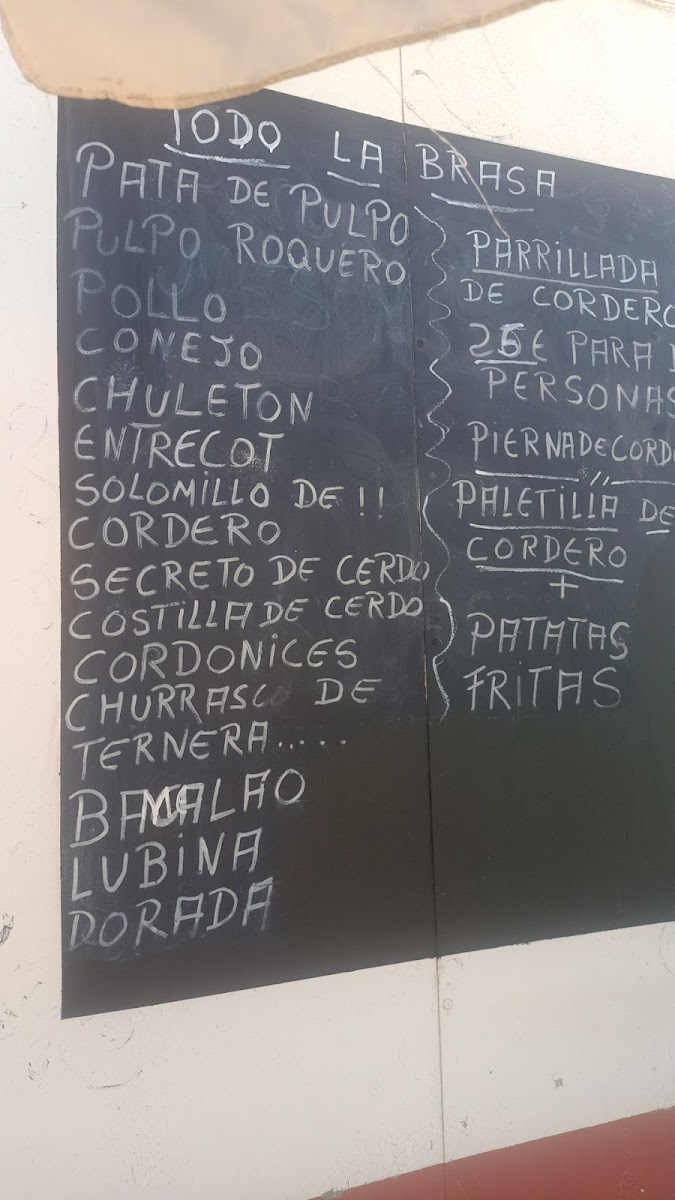 TODO LA BRASA
PATA DE PULPO
PULPO ROQUERO
POLLO
CONEJO
CHULETON
ENTRECOT
SOLOMILLO DE !!
CORDERO
SECRETO DE CERDO
COSTILLA DE CERDO
CORDONICES
CHURRASCO DE
TERNERA.....
LUBINA
DORADA
PARRILLADA
DE CORDERO
25€ PARA
PERSONAS
PIERNA DE CORD
PALETILLA DE
CORDERO
+
PATATAS
FRITAS